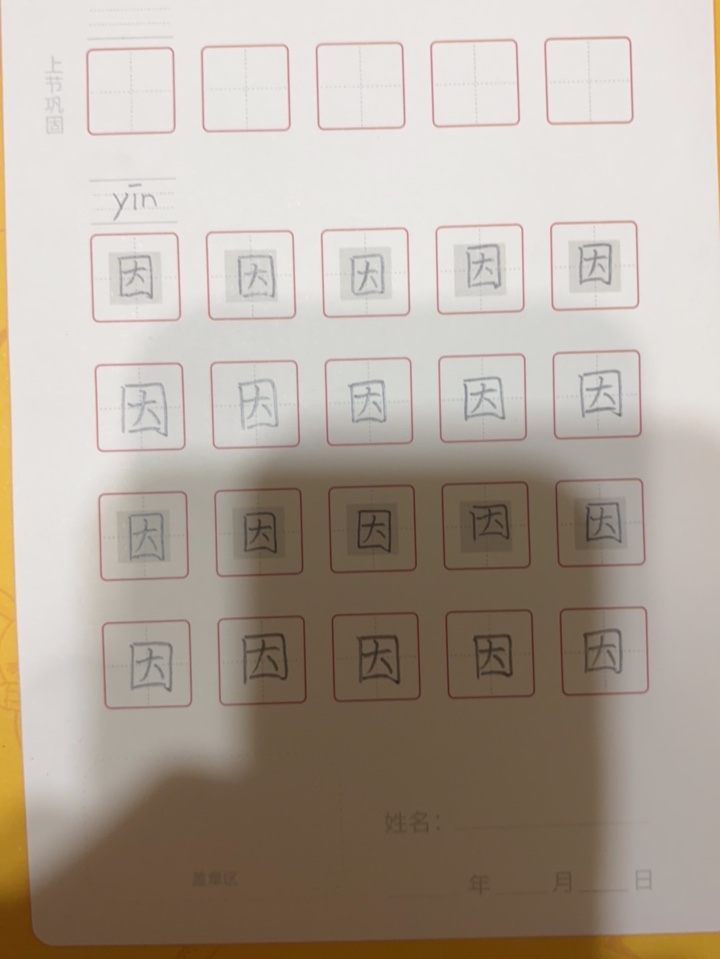 上节巩固
yīn
因 因 因 因 因
因 因 因 因 因
因 因 因 因 因
因 因 因 因 因
姓名：
盖章区
年 月 日